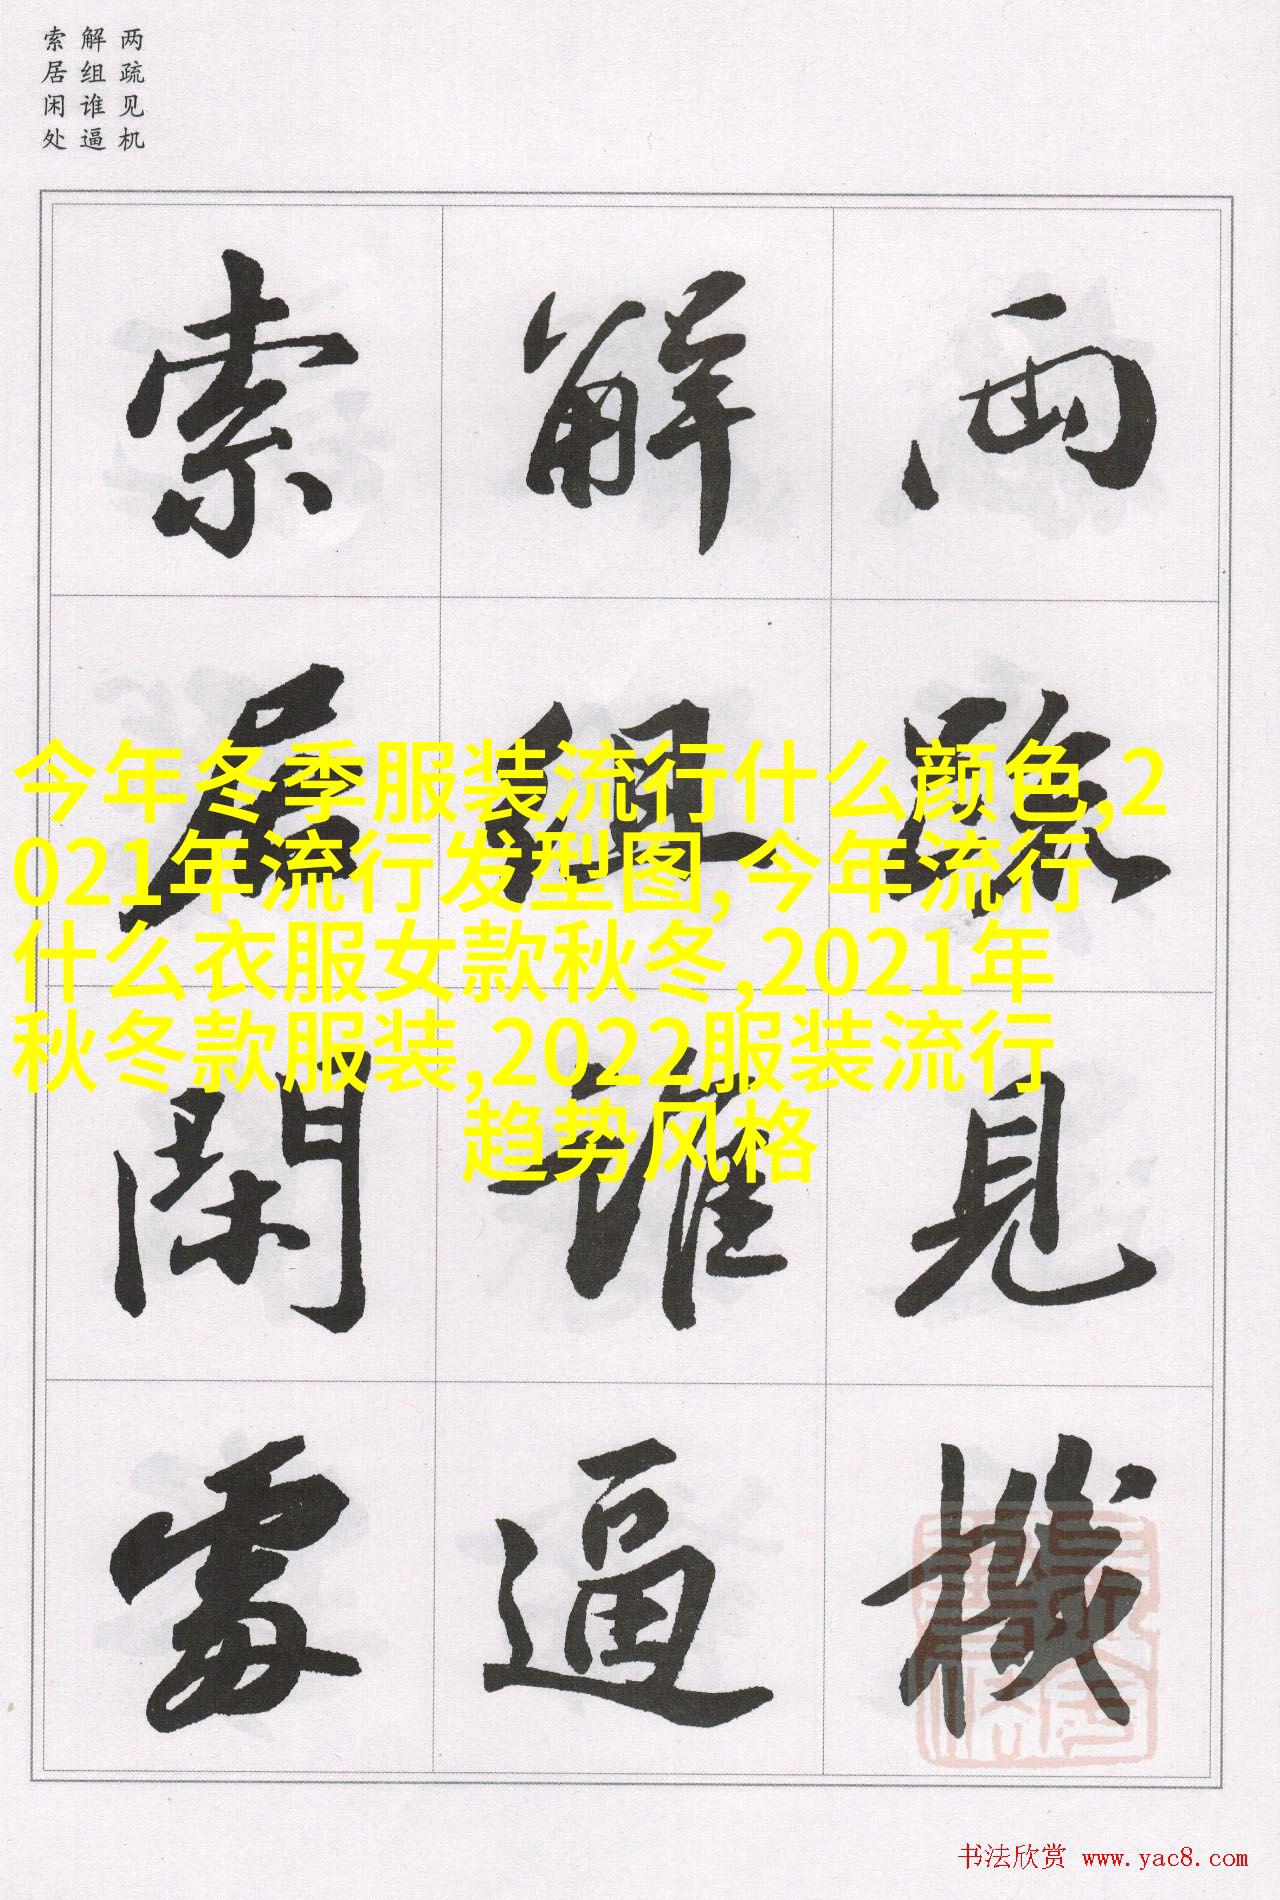 两疏见机
解组谁逼
索居闲处
兩疏見機
解組誰逼
索居閑處
今年冬季服装流行什么颜色,2
021年流行发型图,今年流行
什么衣服女款秋冬,2021年
秋冬款服装,2022服装流行
趋势风格
书法欣赏 www.yac8.com